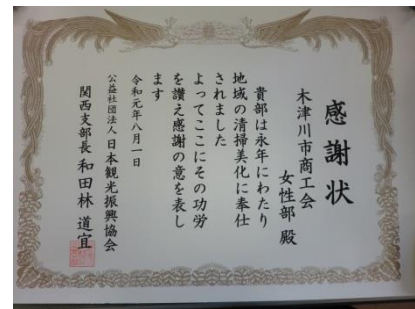 感謝状
木津川市商工会
女性部 殿
貴部は永年にわたり
地域の清掃美化に奉仕
されました
よってここにその功労
を讃え感謝の意を表し
ます
令和元年八月一日
公益社団法人日本観光振興協会
関西支部長 和田林 道宜